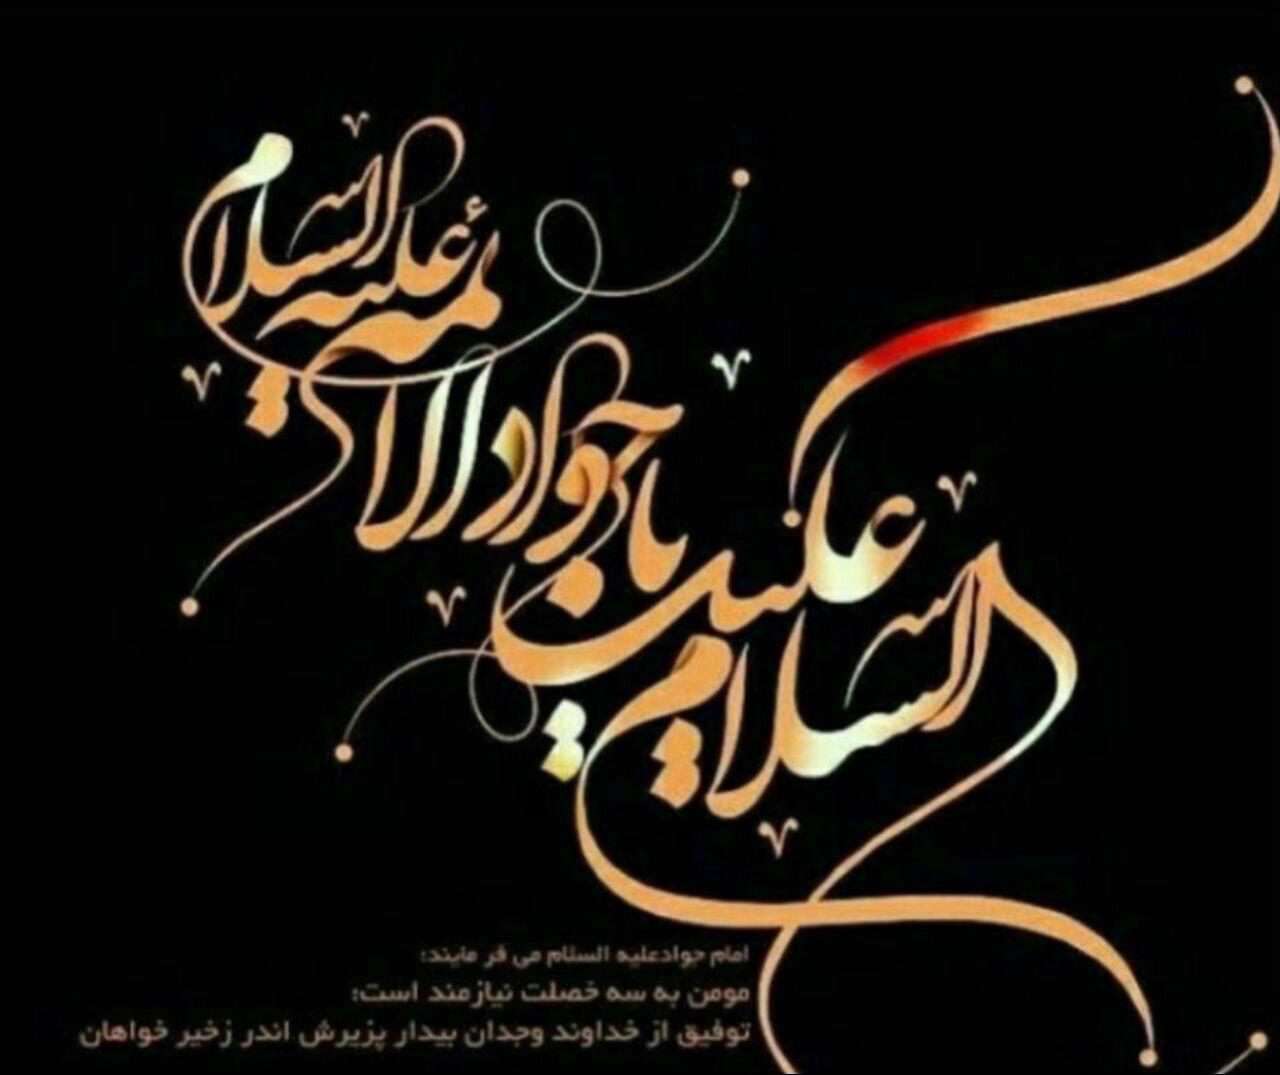 السلام علیک یا جواد الائمه علیه السلام
امام جوادعلیه السلام می فر مایند:
مومن به سه خصلت نیازمند است:
توفیق از خداوند وجدان بیدار پزیرش اندر زخیر خواهان